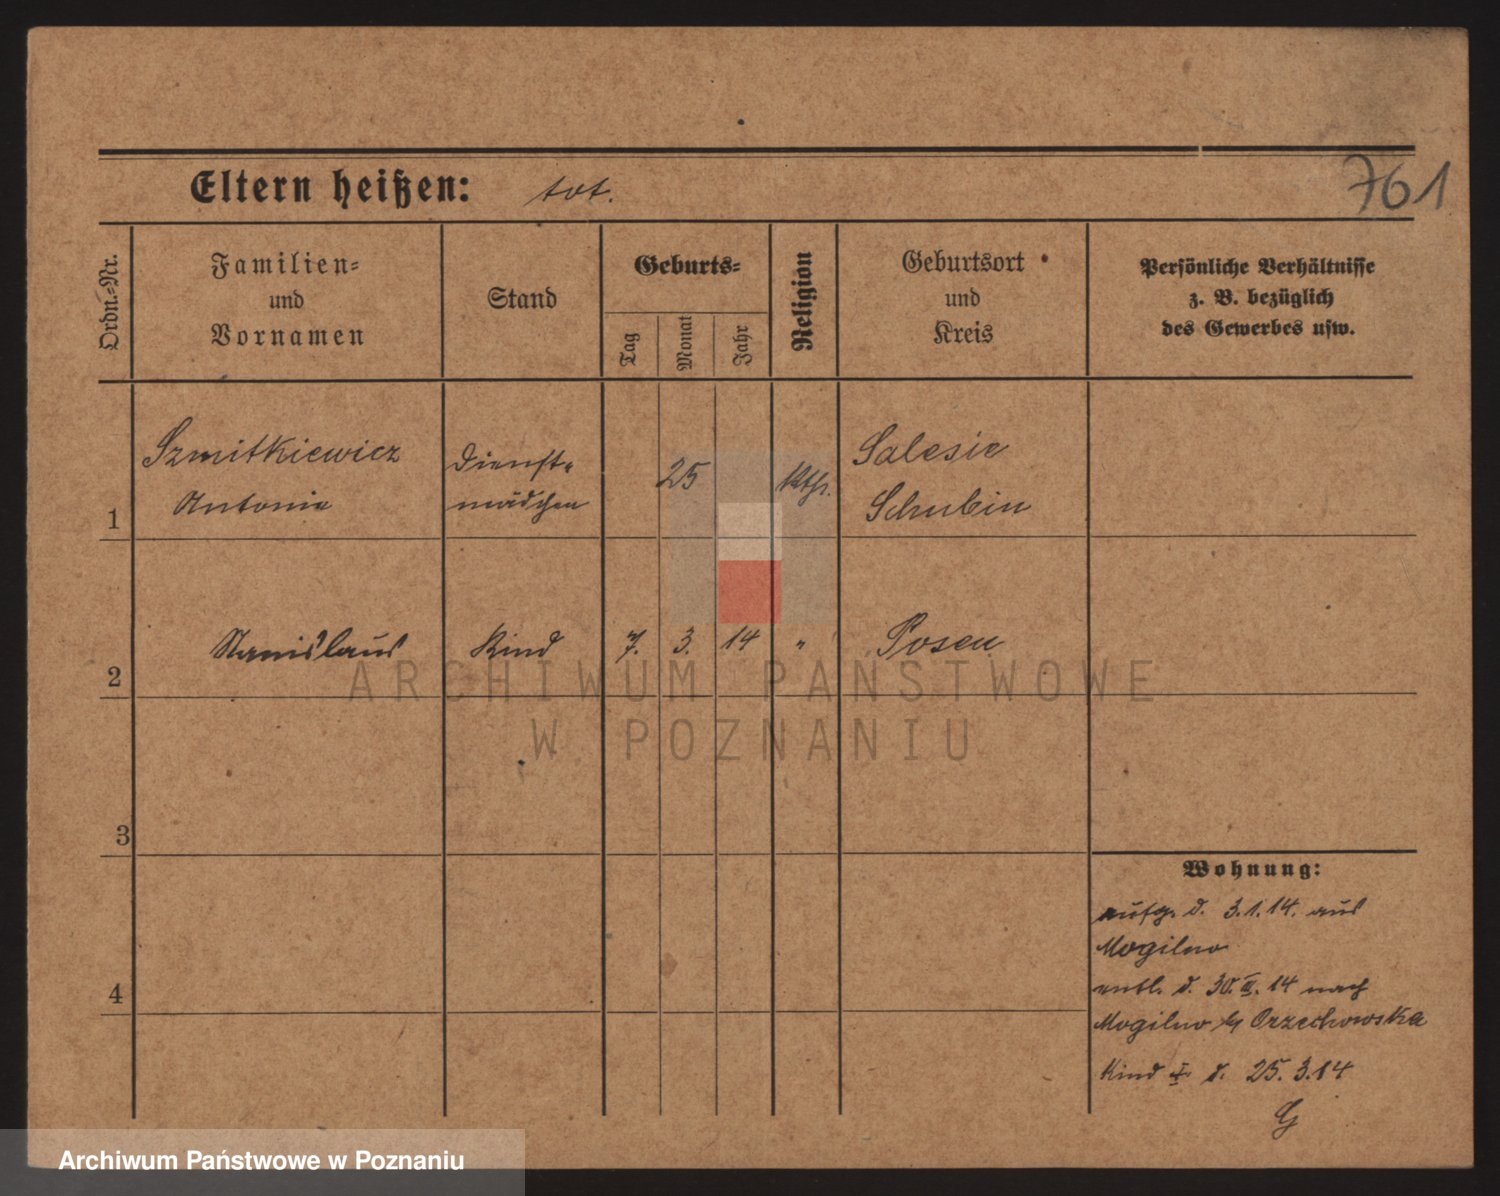 761
Eltern heißen: tot.
Ordn.-Nr.
Familien- und Vornamen
Stand
Geburts-
Tag
Monat
Jahr
Religion
Geburtsort und Kreis
Persönliche Verhältnisse
z. B. bezüglich
des Gewerbes usw.
1
Szmitkiewicz
Antonie
Dienst-
mädchen
25
kth.
Salesie
Schubin
2
Stanislaus
Kind
7.
3.
14
"
Posen
3
4
Wohnung:
aufg. d. 3.1.14. aus
Mogilno
entl. d. 30.III.14 nach
Mogilno Orzechowska
Kind † d. 25.3.14
G
ARCHIWUM PAŃSTWOWE
W POZNANIU
Archiwum Państwowe w Poznaniu